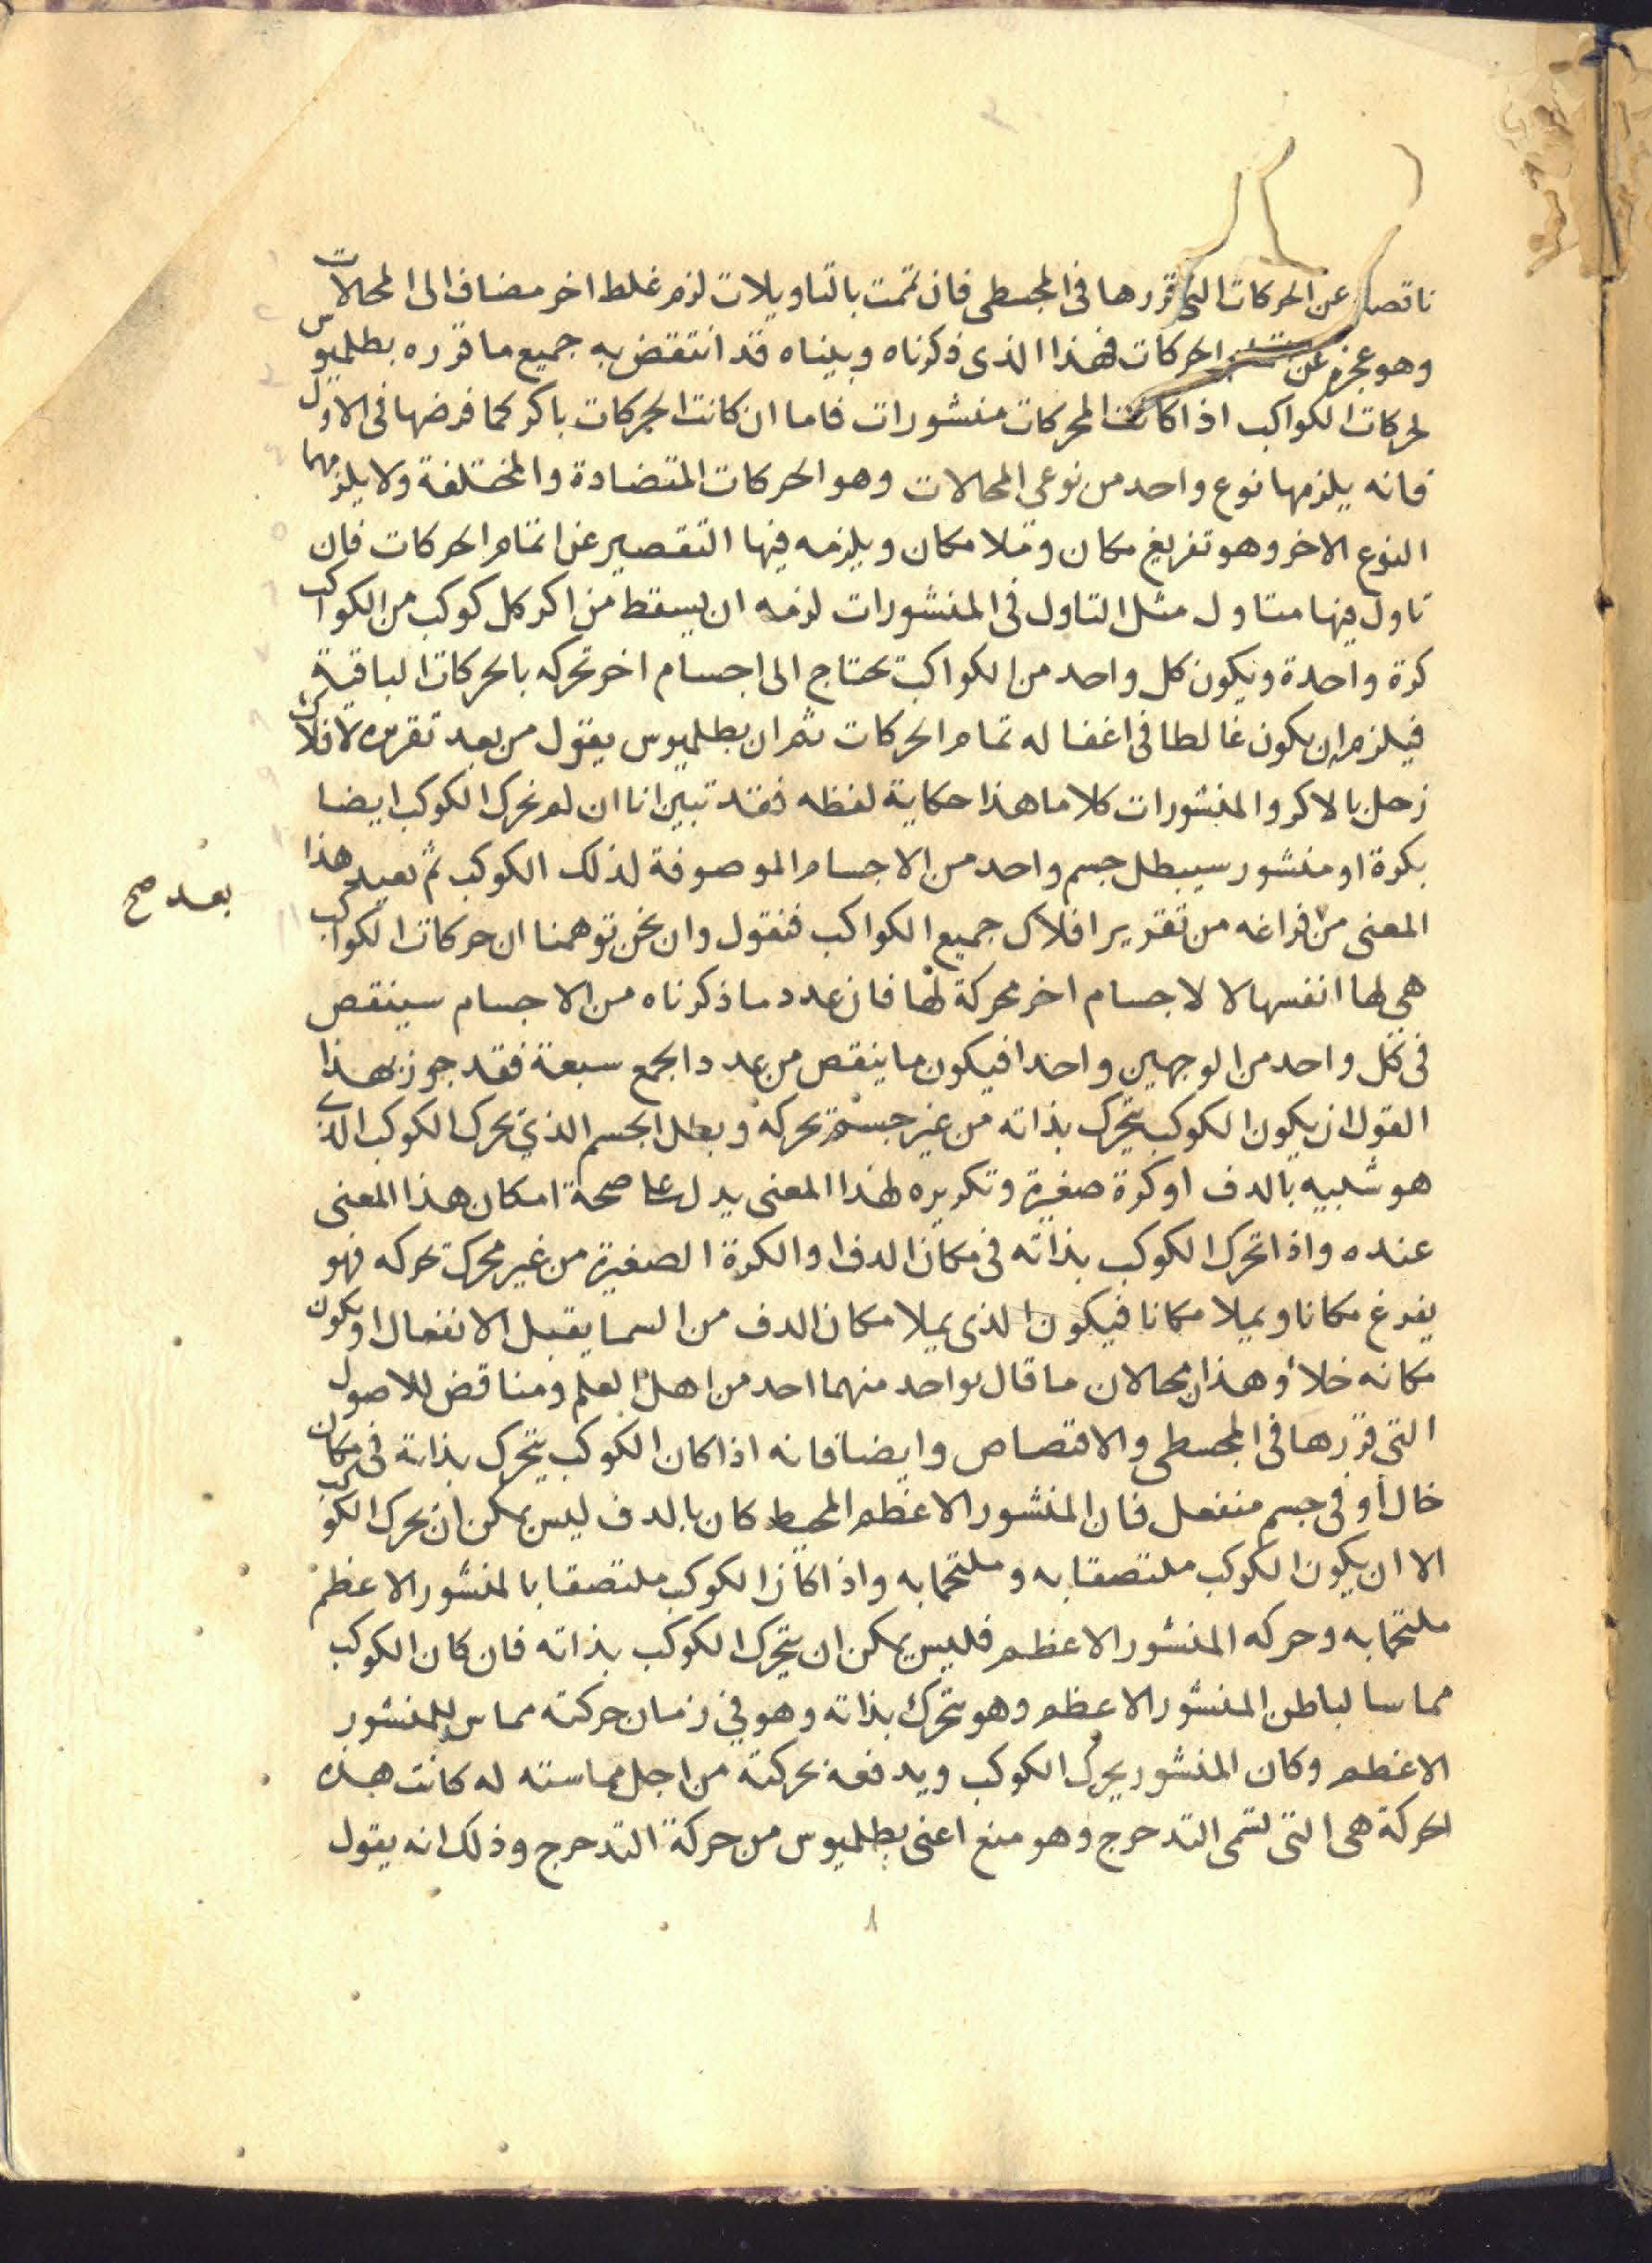 ناقصا عن الحركات التى قررها فى المجسطى فان تممت بالتاويلات لزم غلط اخر مضاف الى المحالات
وهو عجزه عن الحركات فهذا الذى ذكرناه وبيناه قد انتقض به جميع ما قرره بطلميوس
لحركات الكواكب اذا كانت المحركات منشورات فاما ان كانت المحركات باكر كما فرضها فى الاول
فانه يلزمها نوع واحد من نوعى المحالات وهو الحركات المتضادة والمختلفة ولا يلزمها
النوع الاخر وهو تفريغ مكان وملا مكان ويلزمه فيها التقصير عن اتمام الحركات فان
تاول فيها متاول مثل التاول فى المنشورات لزمه ان يسقط من اكر كل كوكب من الكواكب
كرة واحدة ويكون كل واحد من الكواكب تحتاج الى اجسام اخر تحركه بالحركات الباقية
فيلزم ان يكون غالطا فى اغفاله تمام الحركات ثم ان بطلميوس يقول من بعد تقريره لافلاك
زحل بالاكر والمنشورات كلاما هذا حكاية لفظه فقد تبين انا ان لم نحرك الكوكب ايضا
بكرة او منشور سيبطل جسم واحد من الاجسام الموصوفة لذلك الكوكب ثم يعيد هذا
المعنى من فراغه من تقرير افلاك جميع الكواكب فنقول وان نحن توهمنا ان حركات الكواكب
بعد صح
هى لها انفسها لا لاجسام اخر محركة لها فان عدد ما ذكرناه من الاجسام سينقص
فى كل واحد من الوجهين واحدا فيكون ما ينقص من عدد الجمع سبعة فقد جوز بهذا
القول ان يكون الكوكب يتحرك بذاته من غير جسم تحركه وبطل الجسم الذي يحرك الكوكب الذى
هو شبيه بالدف او كرة صغيرة وتكريره لهذا المعنى يدل على صحة امكان هذا المعنى
عنده واذا تحرك الكوكب بذاته فى مكان الدف او الكرة الصغيرة من غير محرك تحركه فهو
يفرغ مكانا ويملا مكانا فيكون الذى يملا مكان الدف من السما يقبل الانفعال او يكون
مكانه خلأ وهذان محالان ما قال بواحد منهما احد من اهل العلم ومناقض للاصول
التى قررها فى المجسطى والاقتصاص وايضا فانه اذا كان الكوكب يتحرك بذاته فى مكان
خال أو فى جسم منفعل فان المنشور الاعظم المحيط كان بالدف ليس يمكن ان يحرك الكوكب
الا ان يكون الكوكب ملتصقا به وملتحما به واذا كان الكوكب ملتصقا بالمنشور الاعظم
ملتحما به وحركه المنشور الاعظم فليس يمكن ان يتحرك الكوكب بذاته فان كان الكوكب
مماسا لباطن المنشور الاعظم وهو يتحرك بذاته وهو في زمان حركته مماس للمنشور
الاعظم وكان المنشور يحرك الكوكب ويدفعه بحركته من اجل مماسته له كانت هذه
الحركة هى التى تسمى التدحرج وهو منع اعنى بطلميوس من حركة التدحرج وذلك انه يقول
٨